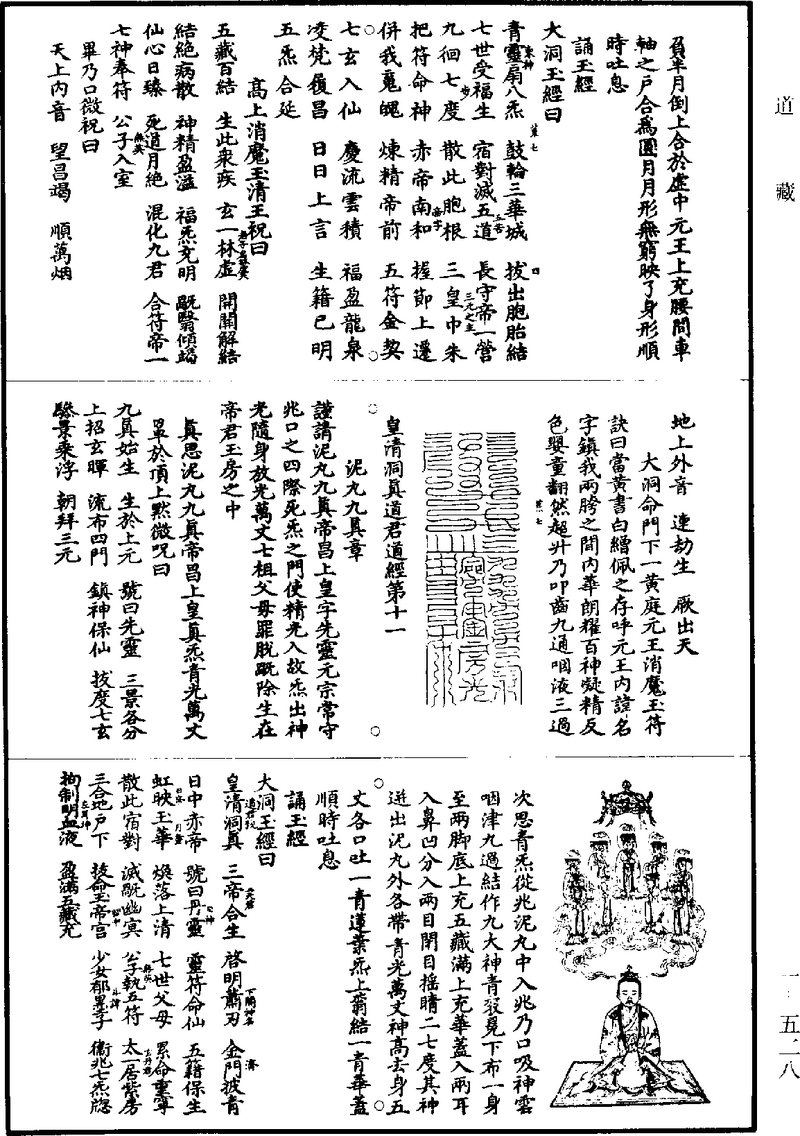 道藏
負半月倒上合於虛中元王上充腰間車
軸之戶合為圓月月形無窮映了身形順
時吐息
誦玉經
大洞玉經曰
青靈扇八炁 鼓輪三華城 拔出胞胎結
七世受福生 宿對滅五道 長守帝一營
九徊七度 散此胞根 三皇巾朱
把符命神 赤帝南和 握節上遷
併我䰟魄 煉精帝前 五符金契
七玄入仙 慶流雲積 福盈龍泉
凌梵履昌 日日上言 生籍已明
五炁合延
高上消魔玉清王祝曰
五藏百結 生此衆疾 玄一林虛 開關解結
結絕病散 神精盈溢 福炁充明 翳傾竭
仙心日臻 死道月絕 混化九君 合符帝一
七神奉符 公子入室
畢乃口微祝曰
天上內音 望昌竭 順萬烟
地上外音 連劫生 厥出天
大洞命門下一黃庭元王消魔玉符
訣曰當黃書白繒佩之存呼元王內諱名
字鎮我兩胯之間內華朗耀百神凝精反
色嬰童翻然超升乃叩齒九通咽液三過
皇清洞真道君道經第十一
泥丸九真章
謹請泥丸九真帝昌上皇字先靈元宗常守
兆口之四際死炁之門使精光入故炁出神
光隨身放光萬丈七祖父母罪脫既除生在
帝君玉房之中
真思泥丸九真帝昌上皇真炁青光萬丈
罩於頂上默微呪曰
九真始生 生於上元 號曰先靈 三景各分
上招玄暉 流布四門 鎮神保仙 拔度七玄
驂景乘浮 朝拜三元
次思青炁從兆泥丸中入兆乃口吸神雲
咽津九過結作九大神青衣冠下布一身
至兩脚底上充五藏滿上充華蓋入兩耳
入鼻凹分入兩目閉目搖睛二七度其神
迸出泥丸外各帶青光萬丈神高去身五
丈各口吐一青蓮葉炁上蓊結一青華蓋
順時吐息
誦玉經
大洞玉經曰
皇清洞真 三帝合生 啓明蕭刃 金門披青
日中赤帝 號曰丹靈 靈符命仙 五籍保生
虹映玉華 煥落上清 七世父母 累命重寧
散此宿對 滅既幽冥 公子執五符 太一居紫房
三合地戶下 拔命玉帝宮 少女郁墨子 衞兆七炁牕
拘制明血液 盈滿五藏充
一‥五二八